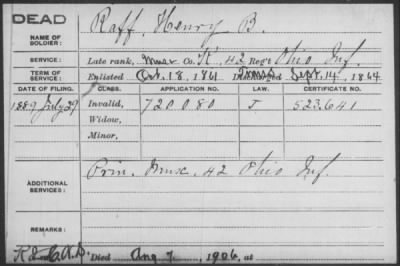 DEAD
NAME OF SOLDIER: Raff, Henry B.
SERVICE: Late rank, Musr. Co. K, 42 Reg't Ohio Inf.
TERM OF SERVICE: Enlisted Oct. 18, 1861 Discharged Sept. 14, 1864
DATE OF FILING. CLASS. APPLICATION NO. LAW. CERTIFICATE NO.
1889 July 29 Invalid, 720080 J 523.641
Widow,
Minor,
ADDITIONAL SERVICES: Prin. Musc, 42 Ohio Inf.
REMARKS:
Died Aug 7, 1906, at